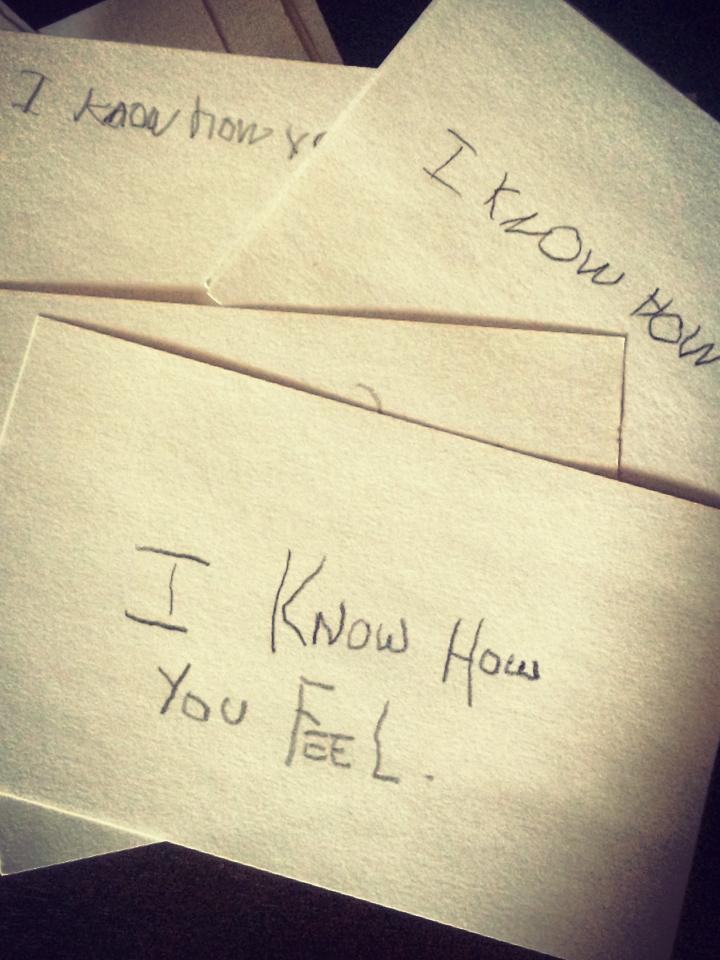 I know how
I KNOW HOW
I KNOW HOW
YOU FEEL.